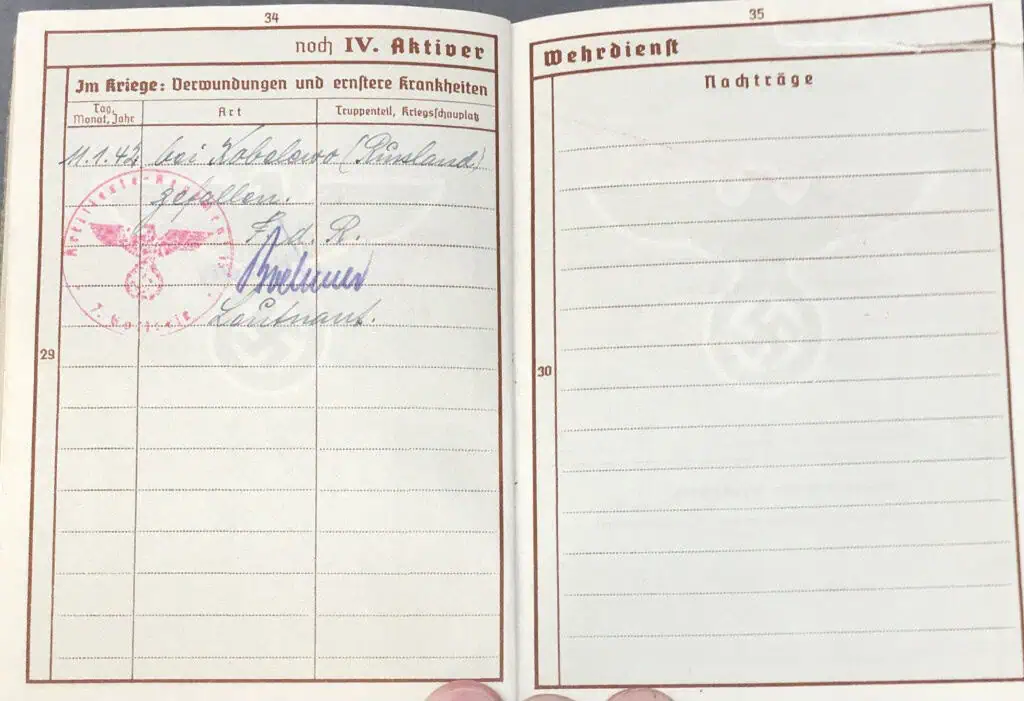 34
noch IV. Aktiver
Im Kriege: Verwundungen und ernstere Krankheiten
Tag, Monat, Jahr
Art
Truppenteil, Kriegsschauplatz
11.1.42 bei Kobelowo (Russland)
gefallen.
F. d. R.
Leutnant.
Artillerie-Regiment
7. Batterie
29
35
Wehrdienst
Nachträge
30